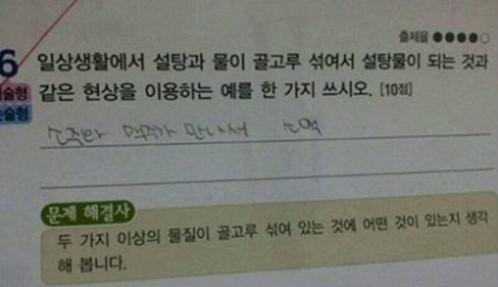 출제율 ●●●●○
6 일상생활에서 설탕과 물이 골고루 섞여서 설탕물이 되는 것과
같은 현상을 이용하는 예를 한 가지 쓰시오. [10점]
술형
술형
소주와 맥주가 만나서 소맥
문제 해결사
두 가지 이상의 물질이 골고루 섞여 있는 것에 어떤 것이 있는지 생각
해 봅니다.